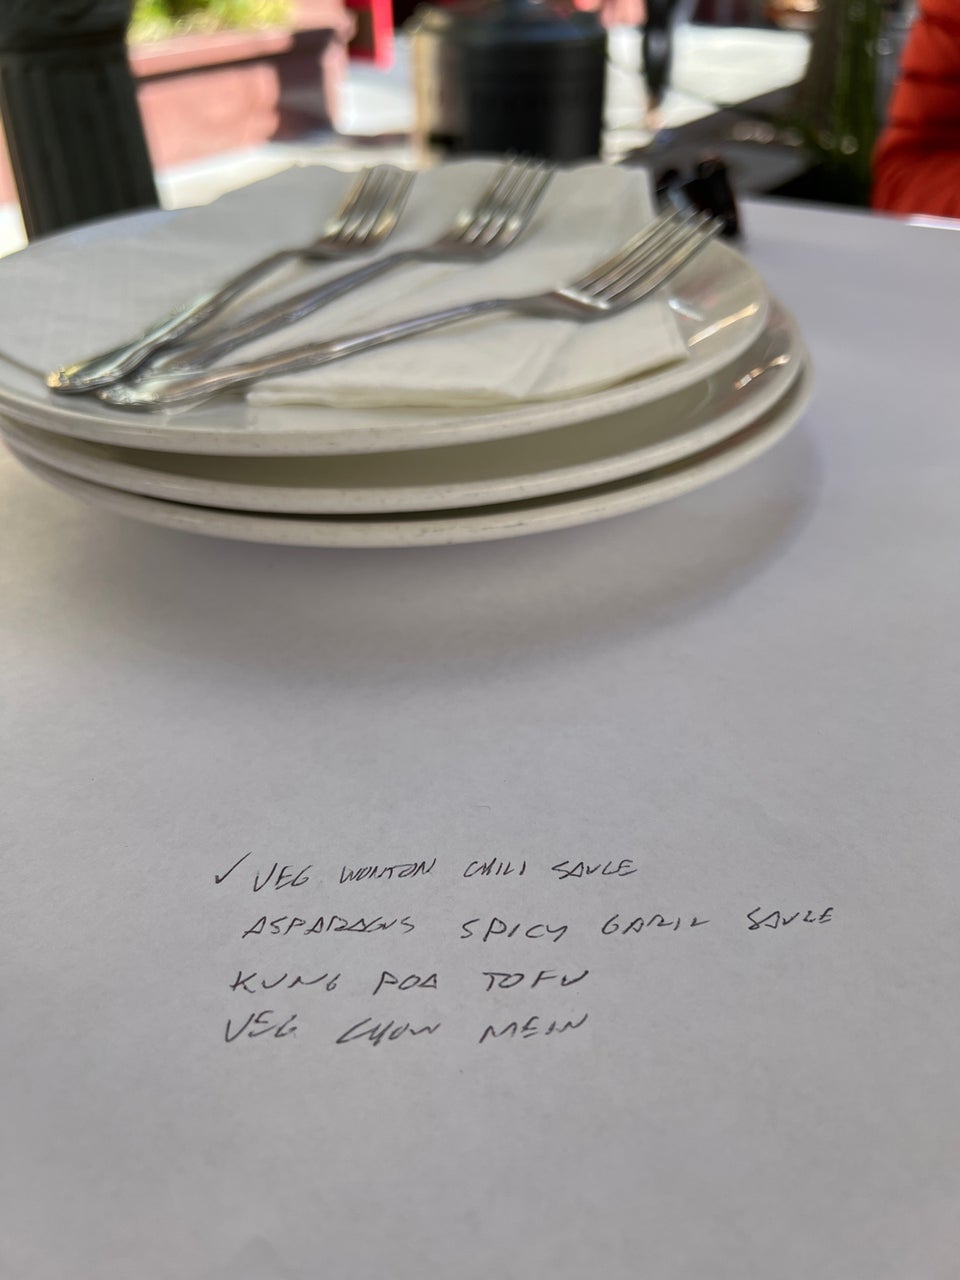 ✓ VEG WONTON CHILI SAUCE
ASPARAGUS SPICY GARLIC SAUCE
KUNG POA TOFU
VEG CHOW MEIN